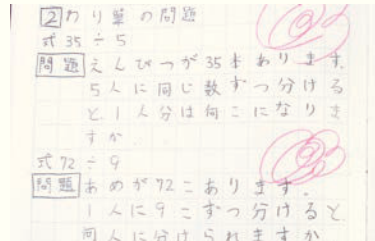 2 わり算の問題
式 35÷5
問題 えんぴつが35本あります。
5人に同じ数ずつ分ける
と、1人分は何こになりま
すか。
式 72÷9
問題 あめが72こあります。
1人に9こずつ分けると、
何人に分けられますか